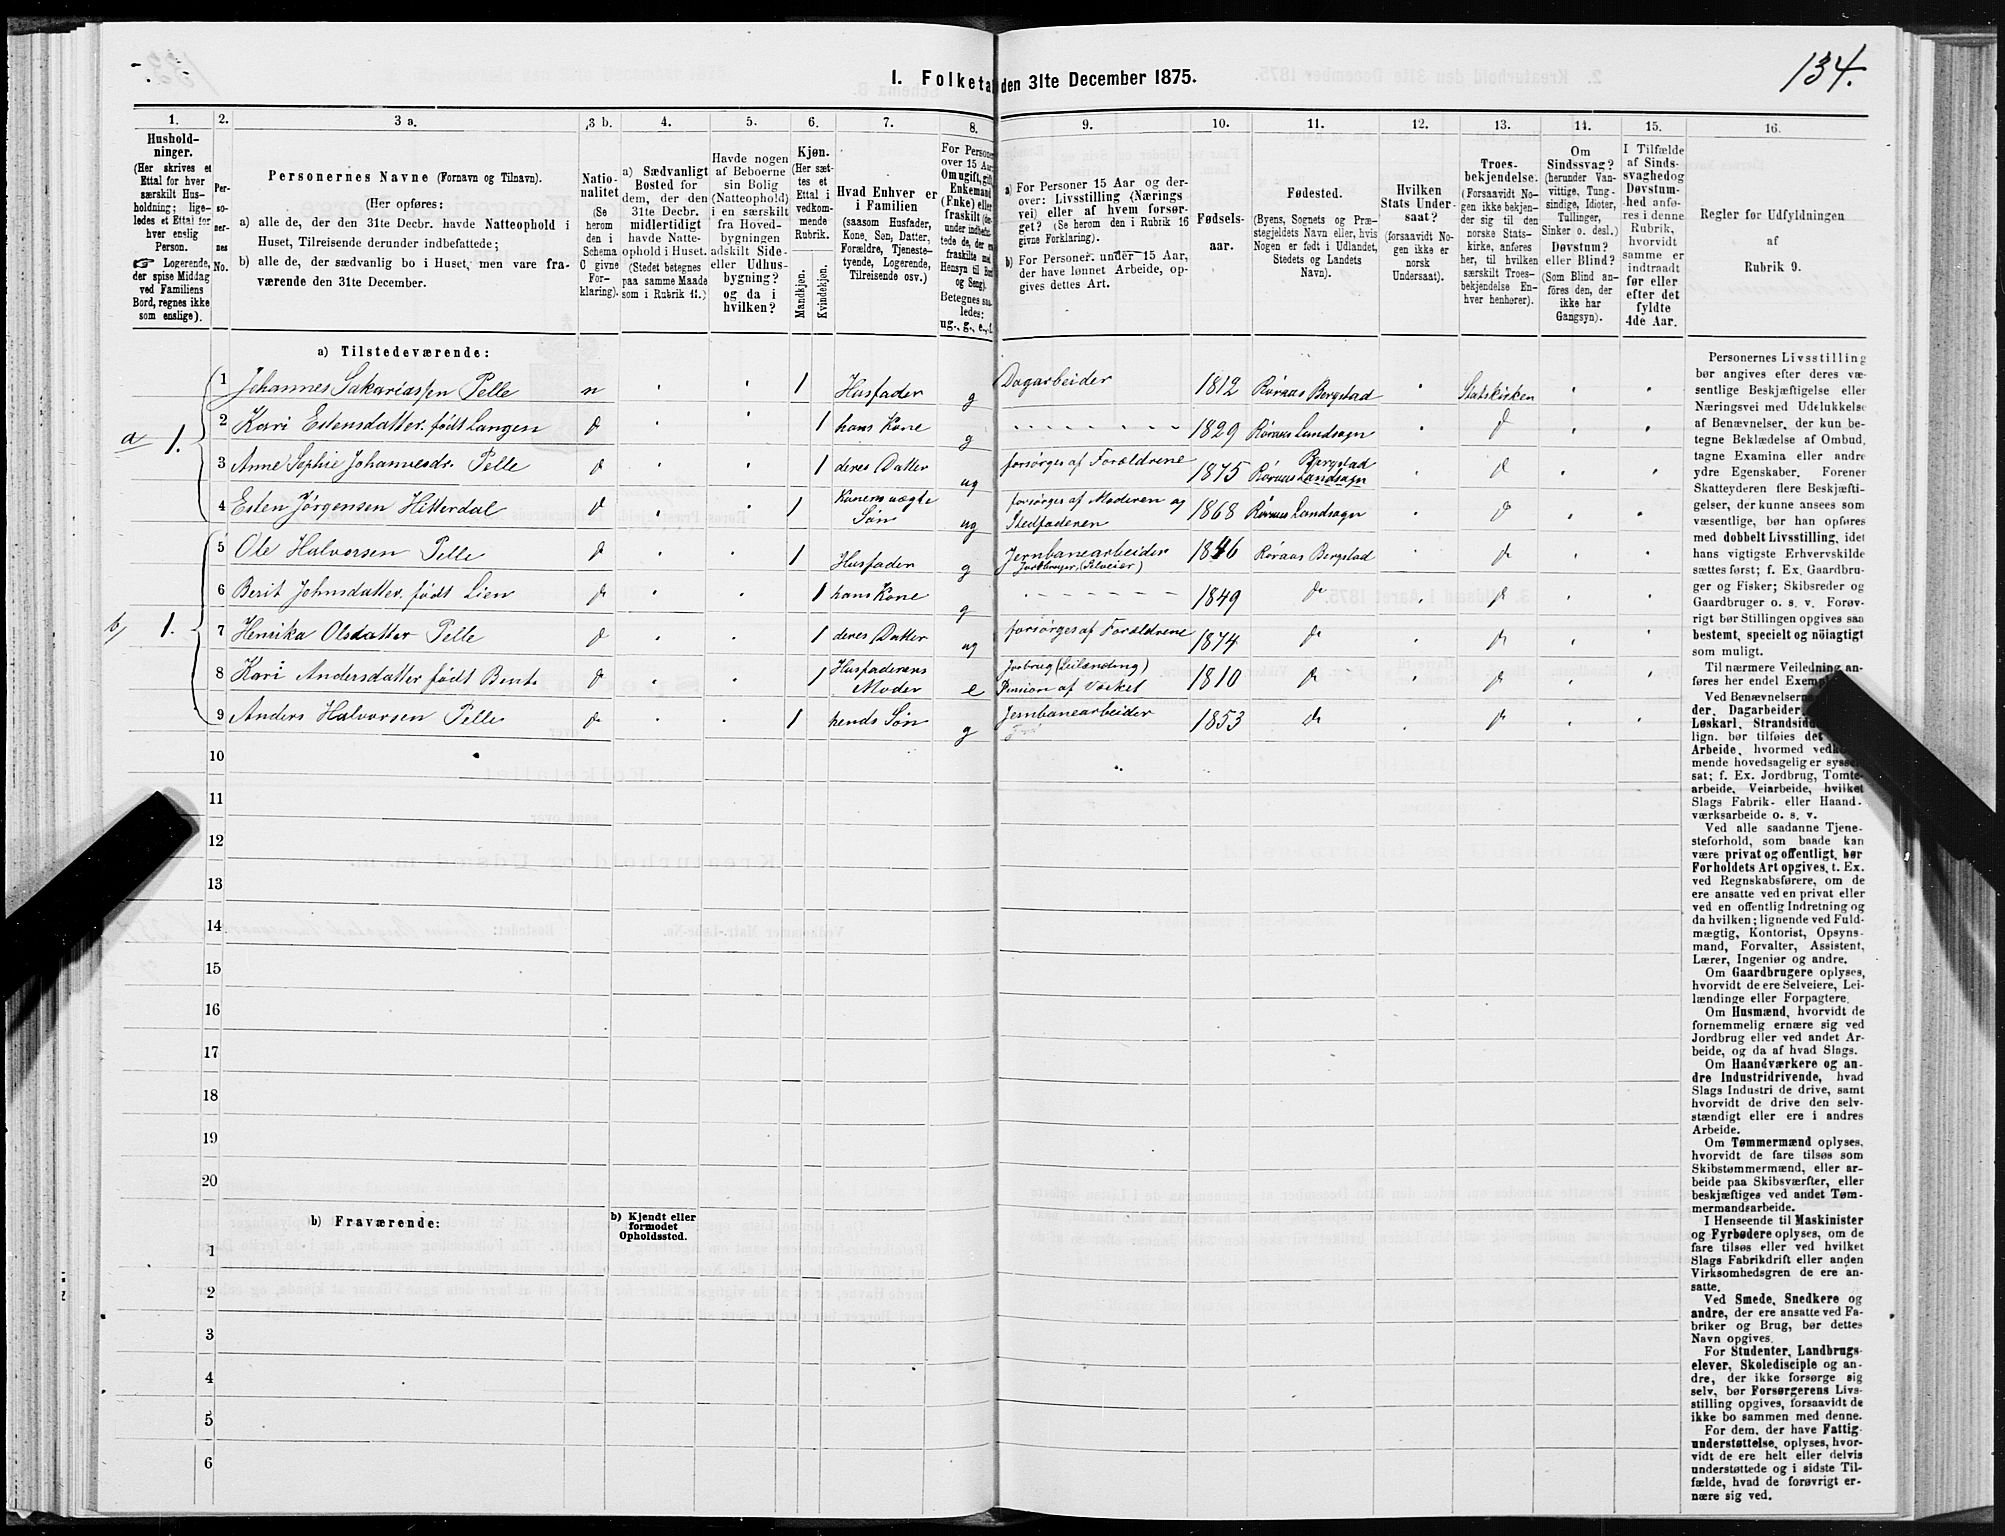 134.
I. Folketa den 31te December 1875.
1.
2.
3 a.
3 b.
4.
5.
6.
7.
8.
9.
10.
11.
12.
13.
14.
15.
16.
Hushold-
ninger.
(Her skrives et
Ettal for hver
særskilt Hus-
holdning; lige-
ledes et Ettal for
hver enslig
Person.
☞ Logerende,
der spise Middag
ved Familiens
Bord, regnes ikke
som enslige).
Per-
so-
ner-
nes
No.
Personernes Navne (Fornavn og Tilnavn).
(Her opføres:
a) alle de, der den 31te Decbr. havde Natteophold i
Huset, Tilreisende derunder indbefattede;
b) alle de, der sædvanlig bo i Huset, men vare fra-
værende den 31te December.
Natio-
nalitet
(Se
herom
den i
Schema
C givne
For-
klaring).
a) Sædvanligt
Bosted for
dem, der den
31te Decbr.
midlertidigt
havde Natte-
ophold i Huset.
(Stedet betegnes
paa samme Maade
som i Rubrik 11.)
Havde nogen
af Beboerne
sin Bolig
(Natteophold)
i en særskilt
fra Hoved-
bygningen
adskilt Side-
eller Udhus-
bygning?
og da i
hvilken?
Kjøn.
(Her sæt-
tes et
Ettal i
vedkom-
mende
Rubrik.
Mandkjøn.
Kvindekjøn.
Hvad Enhver er
i Familien
(saasom Husfader,
Kone, Søn, Datter,
Forældre, Tjeneste-
tyende, Logerende,
Tilreisende osv.)
For Persone
over 15 Aar
Om ugift, gift,
Enkemand
(Fnke) eller
fraskilt (der-
under indbefat-
tede de, der er
fraskilte med
Hensyn til Bord
og Seng).
Betegnes saa-
ledes:
ug., g., e., f.
a) For Personer 15 Aar og der-
over: Livsstilling (Nærings
vei) eller af hvem forsør-
get? (Se herom den i Rubrik 16
givne Forklaring).
b) For Personer under 15 Aar,
der have lønnet Arbeide, op-
gives dettes Art.
Fødsels-
aar.
Fødested.
(Byens, Sognets og Præ-
stegjeldets Navn eller, hvis
Nogen er født i Udlandet,
Stedets og Landets
Navn).
Hvilken
Stats Under-
saat?
(forsaavidt No-
gen ikke er
norsk
Undersaat).
Troes-
bekjendelse.
(Forsaavidt No-
gen ikke bekjen-
der sig til den
norske Stats-
kirke, anføres
her, til hvilken
særskilt Troes-
bekjendelse En-
hver henhører).
Om
Sindssvag?
(herunder Van-
vittige, Tung-
sindige, Idioter,
Tullinger,
Sinker o. desl.)
Døvstum?
eller Blind?
(Som Blind an-
føres den, der
ikke har
Gangsyn).
I Tilfælde
af Sinds-
svaghedog
Døvstum-
hed anfø-
res i denne
Rubrik,
hvorvidt
samme er
indtraadt
før eller
efter det
fyldte
4de Aar.
Regler for Udfyldningen
af
Rubrik 9.
a) Tilstedeværende:
1 Johannes Sakariassen Pelle n 1 Husfader g Dagarbeider 1812 Røraas Bergstad Statskirken
a 1. 2 Kari Estensdatter født Langen d 1 hans Kone g 1829 Røraas Landsogn d
3 Anne Sophie Johannesdr. Pelle d 1 deres Datter ug forsørges af Forældrene 1875 Røraas Landsogn Bergstad d
4 Esten Jørgensen Hitterdal d 1 Konens uægte Søn ug forsørges af Moderen og Stedfaderen 1868 Røraas Landsogn d
5 Ole Halvorsen Pelle d 1 Husfader g Jernbanearbeider Jordbruger (Selveier) 1846 Røraas Bergstad d
6 Berit Johnsdatter født Lien d 1 hans Kone g 1849 d d
b 1. 7 Henrika Olsdatter Pelle d 1 deres Datter ug forsørges af Forældrene 1874 d d
8 Kari Andersdatter født Bent. d 1 Husfaderens Moder e Jorbrug (Leilænding) Pension af Værket 1810 d d
9 Anders Halvorsen Pelle d 1 hends Søn g Jernbanearbeider 1853 d d
10
11
12
13
14
15
16
17
18
19
20
b) Fraværende:
b) Kjendt eller
formodet
Opholdssted.
1
2
3
4
5
6
Personernes Livsstilling
bør angives efter deres væ-
sentlige Beskjæftigelse eller
Næringsvei med Udelukkelse
af Benævnelser, der kun be-
tegne Beklædelse af Ombud,
tagne Examina eller andre
ydre Egenskaber. Forener
Skatteyderen flere Beskjæfti-
gelser, der kunne ansees som
væsentlige, bør han opføres
med dobbelt Livsstilling, idet
hans vigtigste Erhvervskilde
sættes først; f. Ex. Gaardbru-
ger og Fisker; Skibsreder og
Gaardbruger o. s. v. Forøv-
rigt bør Stillingen opgives saa
bestemt, specielt og nöiagtigt
som muligt.
Til nærmere Veiledning an-
føres her endel Exemp
Ved Benævnelsern
der, Dagarbeider
Løskarl, Strandsid
lign. bør tilføies det
Arbeide, hvormed vedk
mende hovedsagelig er syssel
sat; f. Ex. Jordbrug, Tomte-
arbeide, Veiarbeide, hvilket
Slags Fabrik- eller Haand-
værksarbeide o. s. v.
Ved alle saadanne Tjene-
steforhold, som baade kan
være privat og offentligt, bør
Forholdets Art opgives, t. Ex.
ved Regnskabsførere, om de
ere ansatte ved en privat eller
ved en offentlig Indretning og
da hvilken; lignende ved Fuld-
mægtig, Kontorist, Opsyns-
mand, Forvalter, Assistent,
Lærer, Ingeniør og andre.
Om Gaardbrugere oplyses,
hvorvidt de ere Selveiere, Lei-
lændinge eller Forpagtere.
Om Husmænd, hvorvidt de
fornemmelig ernære sig ved
Jordbrug eller ved andet Ar-
beide, og da af hvad Slags.
Om Haandværkere og an-
dre Industridrivende, hvad
Slags Industri de drive, samt
hvorvidt de drive den selv-
stændigt eller ere i andres
Arbeide.
Om Tømmermænd oplyses,
hvorvidt de fare tilsøs som
Skibstømmermænd, eller ar-
beide paa Skibsværfter, eller
beskjæftiges ved andet Tøm-
mermandsarbeide.
I Henseende til Maskinister
og Fyrbødere oplyses, om de
fare tilsøs eller ved hvilket
Slags Fabrikdrift eller anden
Virksomhedsgren de ere an-
satte.
Ved Smede, Snedkere og
andre, der ere ansatte ved Fa-
briker og Brug, bør dettes
Navn opgives.
For Studenter, Landbrugs-
elever, Skoledisciple og an-
dre, der ikke forsørge sig
selv, bør Forsørgerens Livs-
stilling opgives, forsaavidt de
ikke bo sammen med denne.
For dem, der have Fattig-
understøttelse, oplyses, hvor-
vidt de ere helt eller delvis
understøttede og i sidste Til-
fælde, hvad de forøvrigt er-
nære sig ved.